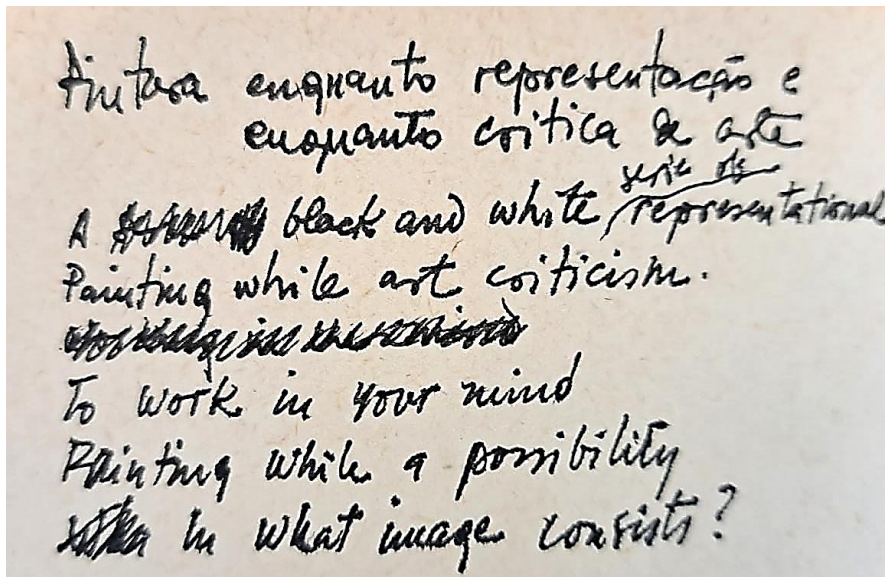 Pintura enquanto representação e
enquanto critica de arte
A black and white, serie of representational
Painting while art criticism.
To work in your mind
Painting while a possibility
In what image consists?